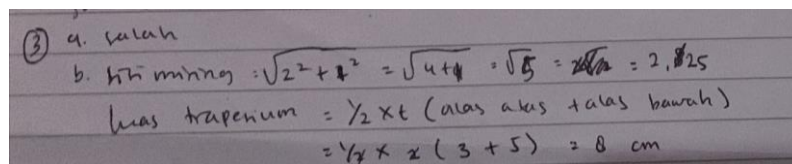 ③ a. salah
b. sisi miring = √2² + 1² = √4+1 = √5 = = 2,825
luas trapesium = 1/2 x t (alas atas + alas bawah)
= 1/2 x 2 (3 + 5) = 8 cm